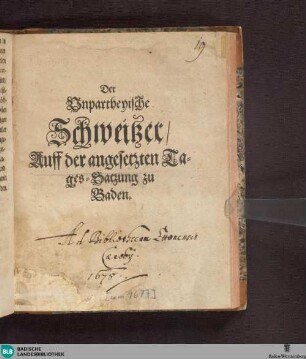 19
Der
Vnpartheyische
Schweitzer/
Auff der angesetzten Ta-
ges-Satzung zu
Baden.
Ad Bibliothecam
1675.
[um 1677]
BLB
BADISCHE
LANDESBIBLIOTHEK
Baden-Württemberg